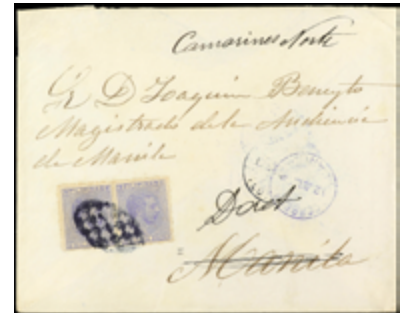 Camarines Norte
Sr D Joaquin Beneyto
Magistrado de la Audiencia
de Manila
Daet
Manila